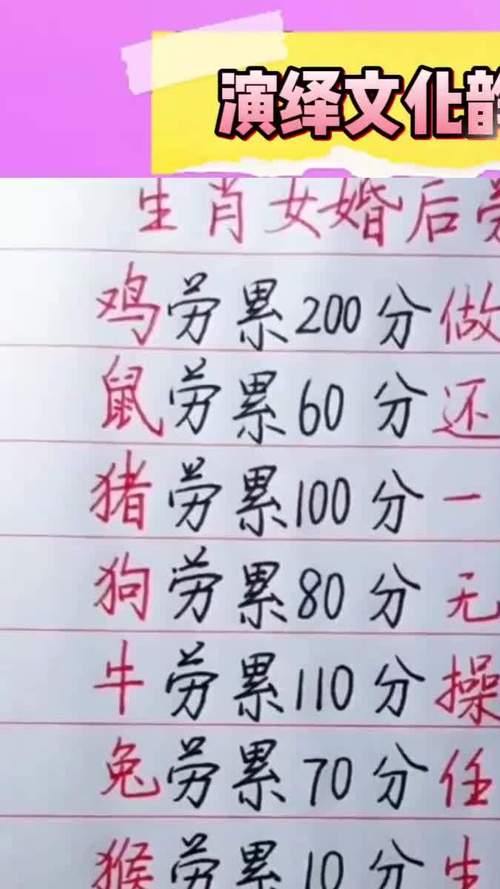 演绎文化韵
生肖女婚后劳
鸡劳累200分做
鼠劳累60分还
猪劳累100分一
狗劳累80分无
牛劳累110分操
兔劳累70分任
猴劳累10分生